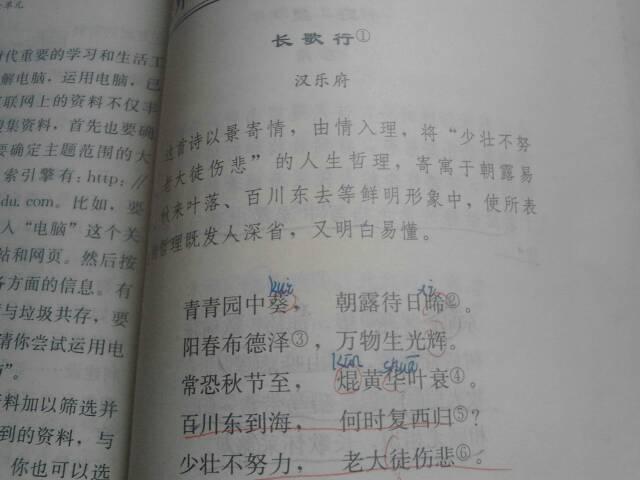 单元
时代重要的学习和生活工
解电脑，运用电脑，已
互联网上的资料不仅丰
搜集资料，首先也要确
要确定主题范围的大
索引擎有：http：/
du.com。比如，要
入“电脑”这个关
站和网页。然后按
各方面的信息。有
与垃圾共存，要
请你尝试运用电
”。
资料加以筛选并
到的资料，与
你也可以选
长歌行①
汉乐府
这首诗以景寄情，由情入理，将“少壮不努
老大徒伤悲”的人生哲理，寄寓于朝露易
秋来叶落、百川东去等鲜明形象中，使所表
哲理既发人深省，又明白易懂。
kuí
xī
青青园中葵，朝露待日晞②。
阳春布德泽③，万物生光辉。
kūn
shuāi
常恐秋节至，焜黄华叶衰④。
百川东到海，何时复西归⑤？
少壮不努力，老大徒伤悲⑥。